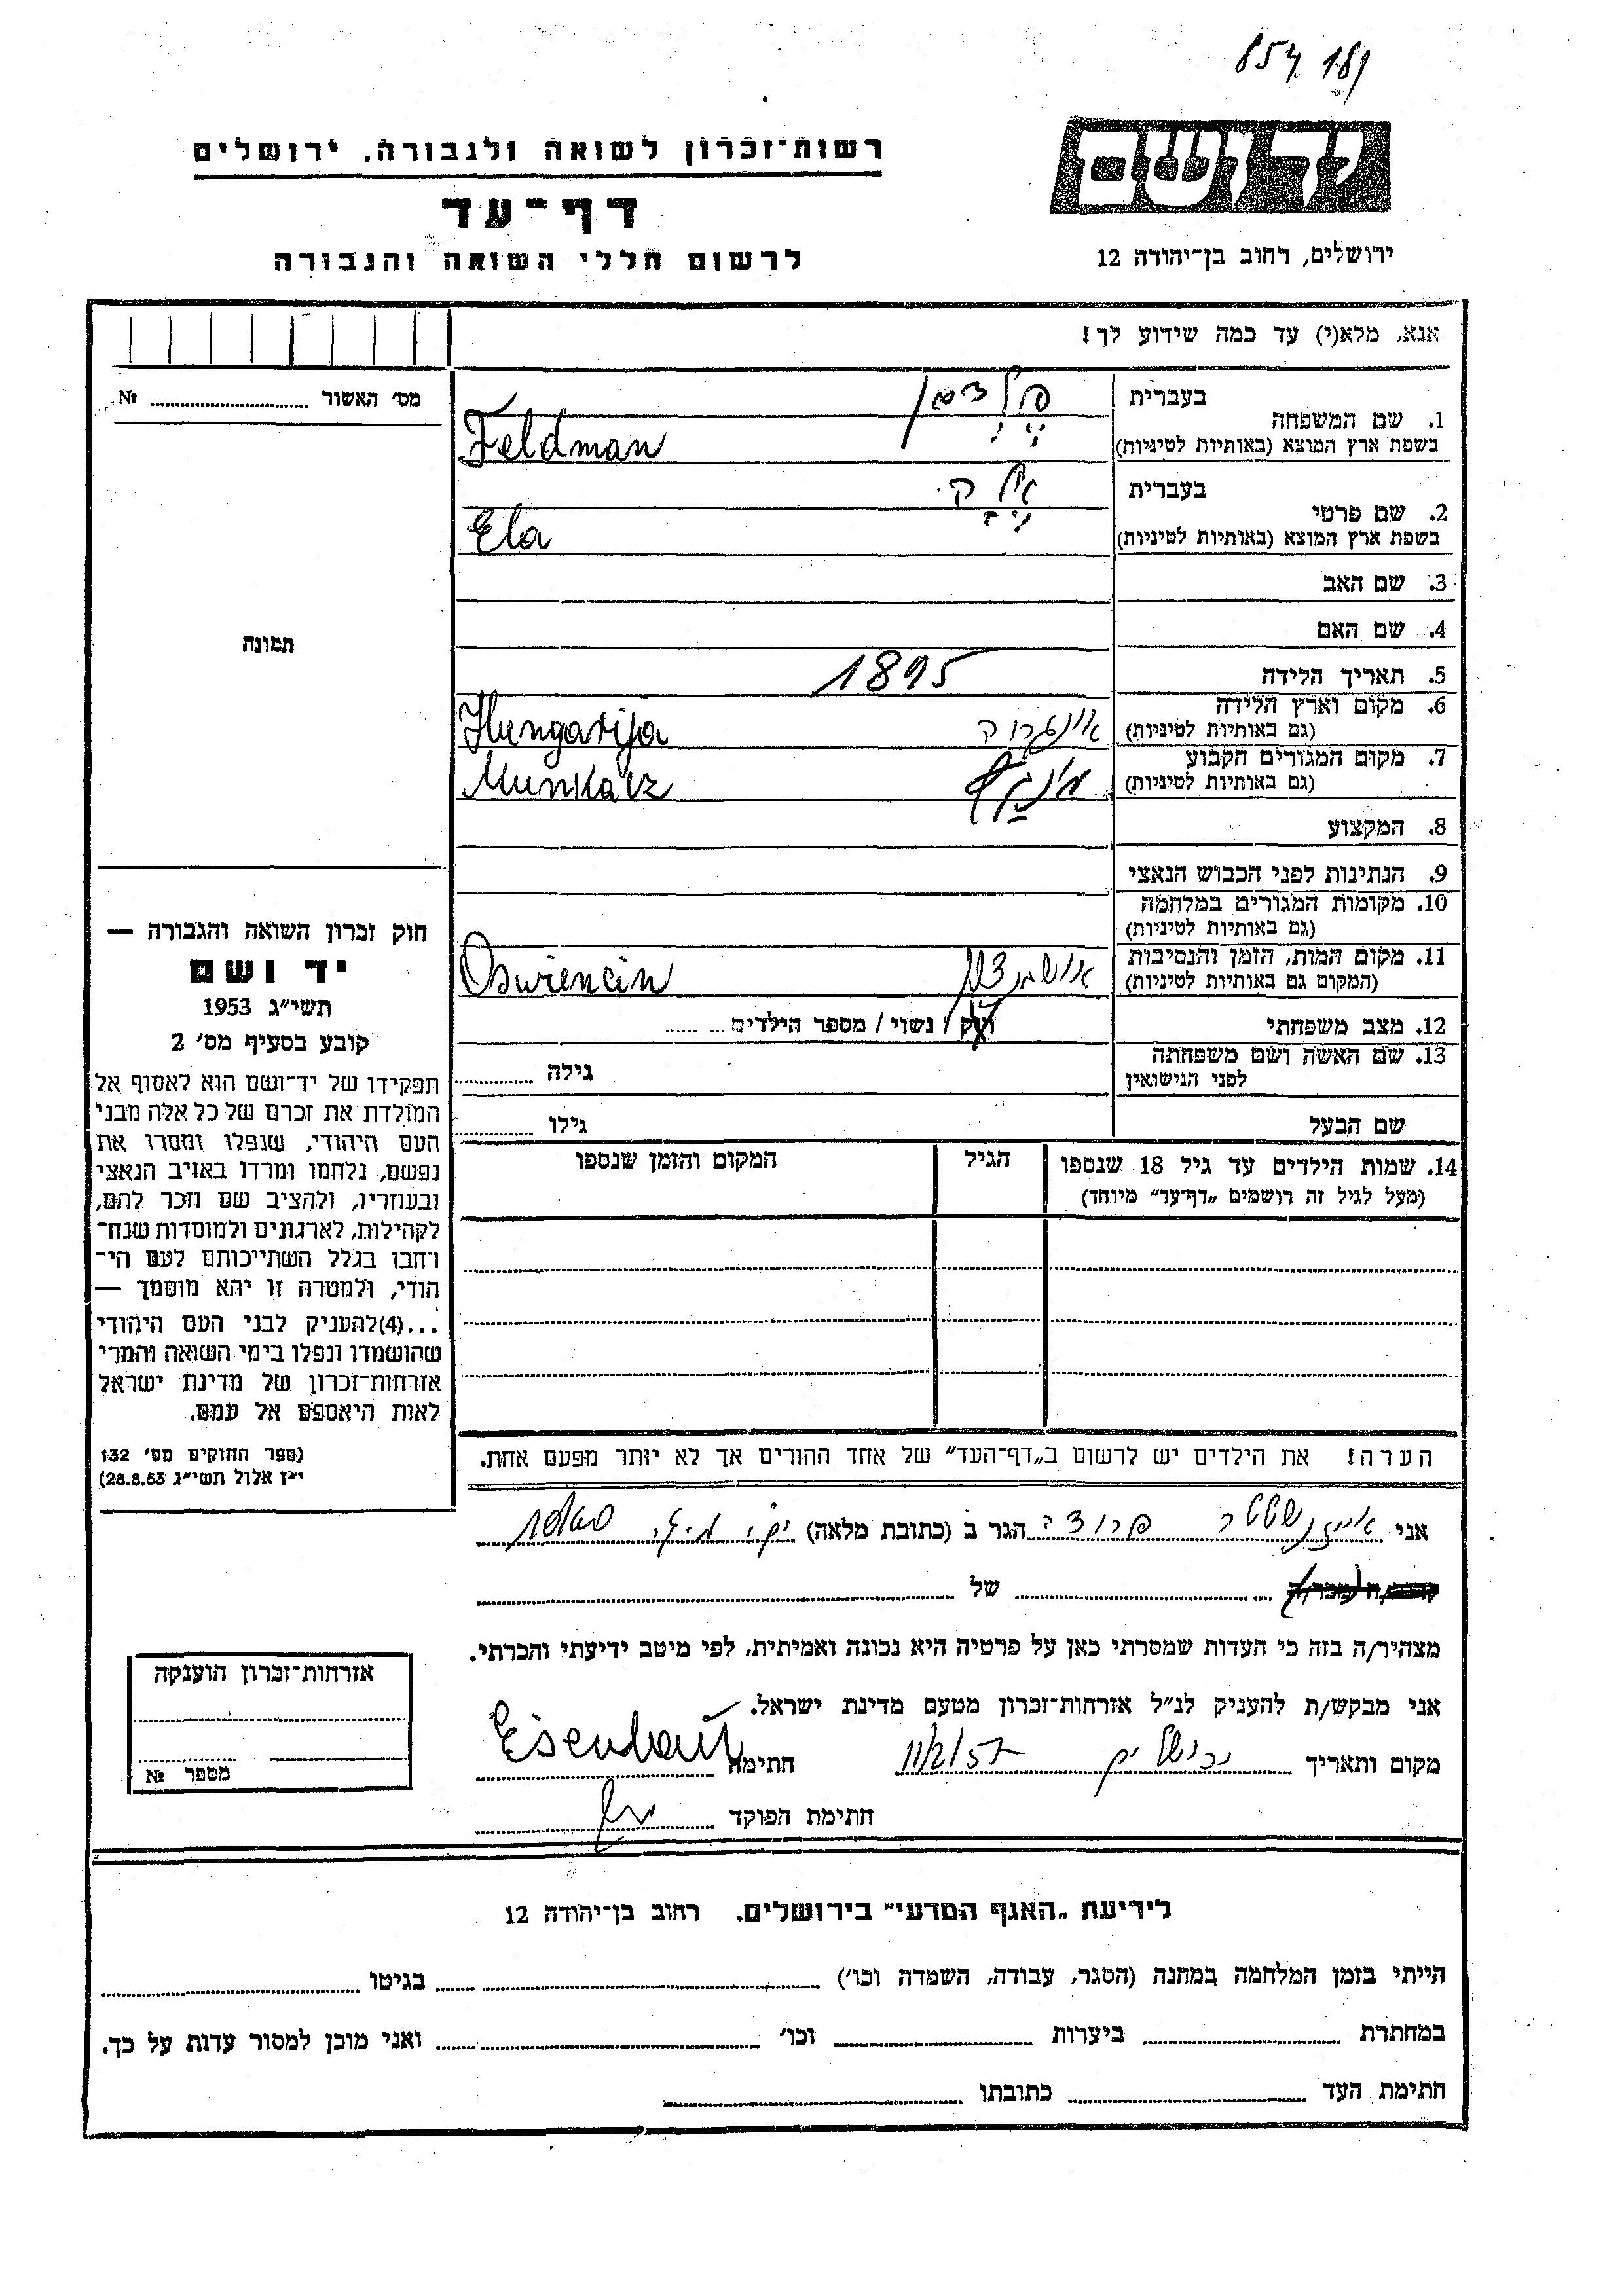 854 189
יד ושם
רשות־זכרון לשואה ולגבורה. ירושלים
דף־עד
לרשום חללי השואה והגבורה
ירושלים, רחוב בן־יהודה 12
אנא, מלא(י) עד כמה שידוע לך!
מס׳ האשור № ........
תמונה
1. שם המשפחה
בעברית
פלדמן
בשפת ארץ המוצא (באותיות לטיניות)
Feldman
2. שם פרטי
בעברית
בשפת ארץ המוצא (באותיות לטיניות)
Ela
3. שם האב
4. שם האם
5. תאריך הלידה
1895
6. מקום וארץ הלידה
(גם באותיות לטיניות)
Hungarija
7. מקום המגורים הקבוע
(גם באותיות לטיניות)
Munkacz
8. המקצוע
9. הנתינות לפני הכבוש הנאצי
10. מקומות המגורים במלחמה
(גם באותיות לטיניות)
11. מקום המות, הזמן והנסיבות
(המקום גם באותיות לטיניות)
Oswiencin
12. מצב משפחתי
רוק / נשוי / מספר הילדים ........
13. שם האשה ושם משפחתה
לפני הנישואין
גילה ........
שם הבעל
גילו ........
14. שמות הילדים עד גיל 18 שנספו
(מעל לגיל זה רושמים „דף־עד״ מיוחד)
הגיל
המקום והזמן שנספו
הערה! את הילדים יש לרשום ב„דף־העד״ של אחד ההורים אך לא יותר מפעם אחת.
חוק זכרון השואה והגבורה —
יד ושם
תשי״ג 1953
קובע בסעיף מס׳ 2
תפקידו של יד־ושם הוא לאסוף אל
המולדת את זכרם של כל אלה מבני
העם היהודי, שנפלו ומסרו את
נפשם, נלחמו ומרדו באויב הנאצי
ובעוזריו, ולהציב שם וזכר להם,
לקהילות, לארגונים ולמוסדות שנח־
רחבו בגלל השתייכותם לעם הי־
הודי, ולמטרה זו יהא מוסמך —
...(4)להעניק לבני העם היהודי
שהושמדו ונפלו בימי השואה והמרי
אזרחות־זכרון של מדינת ישראל
לאות היאספם אל עמם.
(ספר החוקים מס׳ 132
י״ז אלול תשי״ג 28.8.53)
אני הגר ב (כתובת מלאה)
קרוב/ה (מכר/ה) ........ של ........
מצהיר/ה בזה כי העדות שמסרתי כאן על פרטיה היא נכונה ואמיתית, לפי מיטב ידיעתי והכרתי.
אני מבקש/ת להעניק לנ״ל אזרחות־זכרון מטעם מדינת ישראל.
מקום ותאריך ירושלים 11/2/57 חתימה
חתימת הפוקד
אזרחות־זכרון הוענקה
מספר №
לידיעת „האגף המדעי״ בירושלים. רחוב בן־יהודה 12
הייתי בזמן המלחמה במחנה (הסגר, עבודה, השמדה וכו׳) ........ בגיטו ........
במחתרת ........ ביערות ........ וכו׳ ........ ואני מוכן למסור עדות על כך.
חתימת העד ........ כתובתו ........